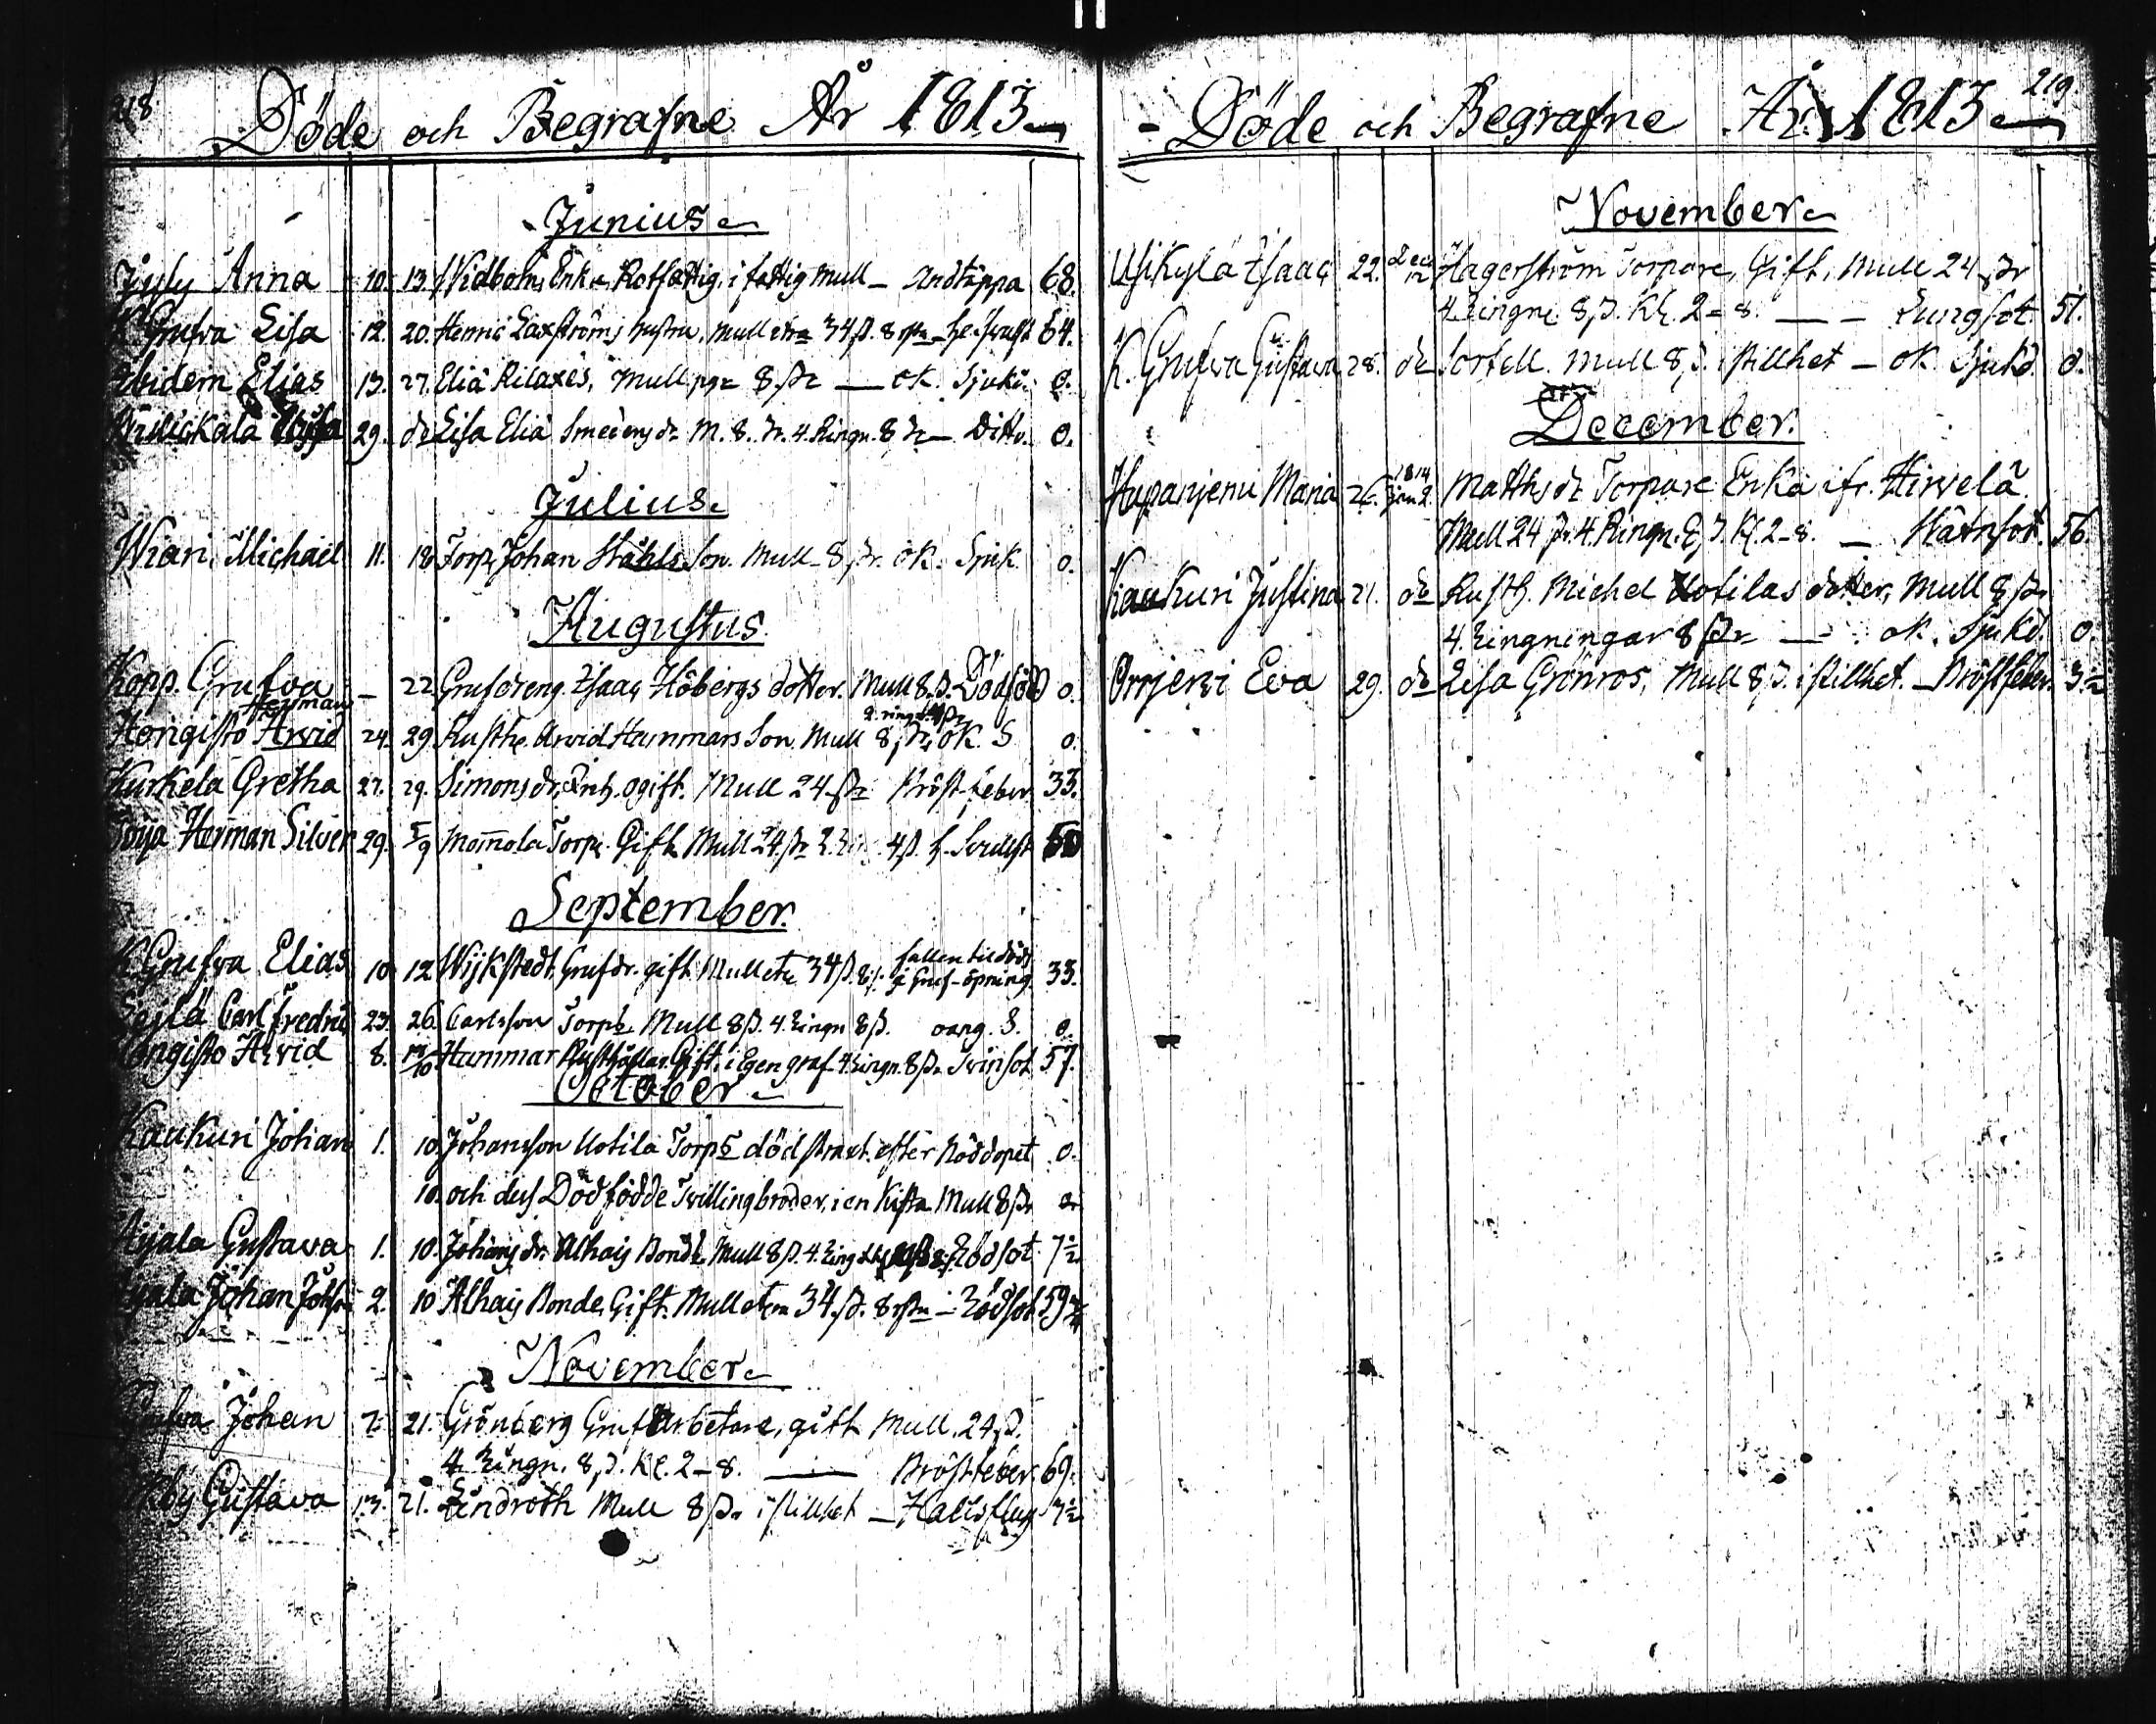 218
Döde och Begrafne År 1813
Junius
Jyly Anna 10. 13. Widbom, Enka, Rotfattig, i fattig mull - Andtäppa 68.
K. Grufva Lisa 12. 20. Henric Laxströms hustru, mull 34 ß. 8 64.
Ibidem Elias 13. 27. Eliæ Rilaxes, Mull 8 ß - ok. Sjukd. 0.
29. do Lisa Eliæ Smedens dr. M. 8. 4. Ringn. 8 - Ditto. 0.
Julius.
Wiari Michael 11. 18 Torp. Johan Ståhls Son. Mull 8 ß. ok. Sjuk. 0.
Augustus
Kopp. Grufva - 22 Grufdreng Isaac Höbergs dotter. Mull 8. ß. Dödfödd 0.
Herman 2 ringn. 4 ß
Hongisto Arvid 24. 29. Rusth. Arvid Hammars Son. Mull 8 ß, ok. S 0.
Kurkela Gretha 27. 29. Simonsdr, Inh. ogift. Mull 24 ß Bröst feber 33.
Herman Silver 29. 5/9 Mommola Torp. Gift Mull 24 ß 4 ß.
September.
K. Grufva Elias 10. 12 Wijkstedt, Grufdr. gift. Mull 34 ß. 8 fallen til döds i Gruf-öpning 33.
Carl Fredric 23. 26. Carlsson Torp Mull 8 ß. 4 Ringn 8 ß. oang. S. 0.
Hongisto Arvid 8. Hammar Rusthållar. Gift. i Egen graf. 4 Ringn. 8 ß. Tvinsot. 57.
October
Kaukuri Johan 1. 10. Johansson Uotila Torps död straxt efter Nöddopet 0.
10. och dess Dödfödde Tvillingbroder, i en Kista Mull 8 ß 0.
Äyälä Gustava 1. 10. Johansdr. Alhais Bonde Mull 8 ß. 4. Ring Rödsot 7 1/2
Johan 2. 10 Alhais Bonde, Gift. Mull 34 ß. 8 - Rödsot 59
November
Grufva Johan 7. 21. Grönberg Grufarbetare, gift Mull. 24 ß.
4 Ringn. 8 ß. Kl. 2-8. — Bröstfeber. 69.
Gustava 13. 21. Lindroth Mull 8 ß i stillhet - Halsfluss 7 1/2
219
Döde och Begrafne År 1813
November
Usikylä Isaac 22. Dec 12 Hagerström Torpare, Gift, Mull 24 ß
4 Ringn. 8 ß. Kl. 2-8. — Lungsot. 51.
K. Grufva Gustava 28. do Sortell. Mull 8 ß. i stillhet - ok. Sjukd. 0.
December.
Haparjemi Maria 26. 1814 Jan 2. Matthsdr Torpare Enka ifr. Hirvelä.
Mull 24 ß. 4. Ringn. 8 ß. Kl. 2-8. — Wattusot. 56.
Kaukuri Justina 21. do Rusth. Michel Uotilas dotter, Mull 8 ß.
4. Ringningar 8 ß — ok. Sjukd. 0.
Orrjerwi Eva 29. do Lisa Grönros, Mull 8 ß. i stillhet. - Bröstfeber. 3 1/2